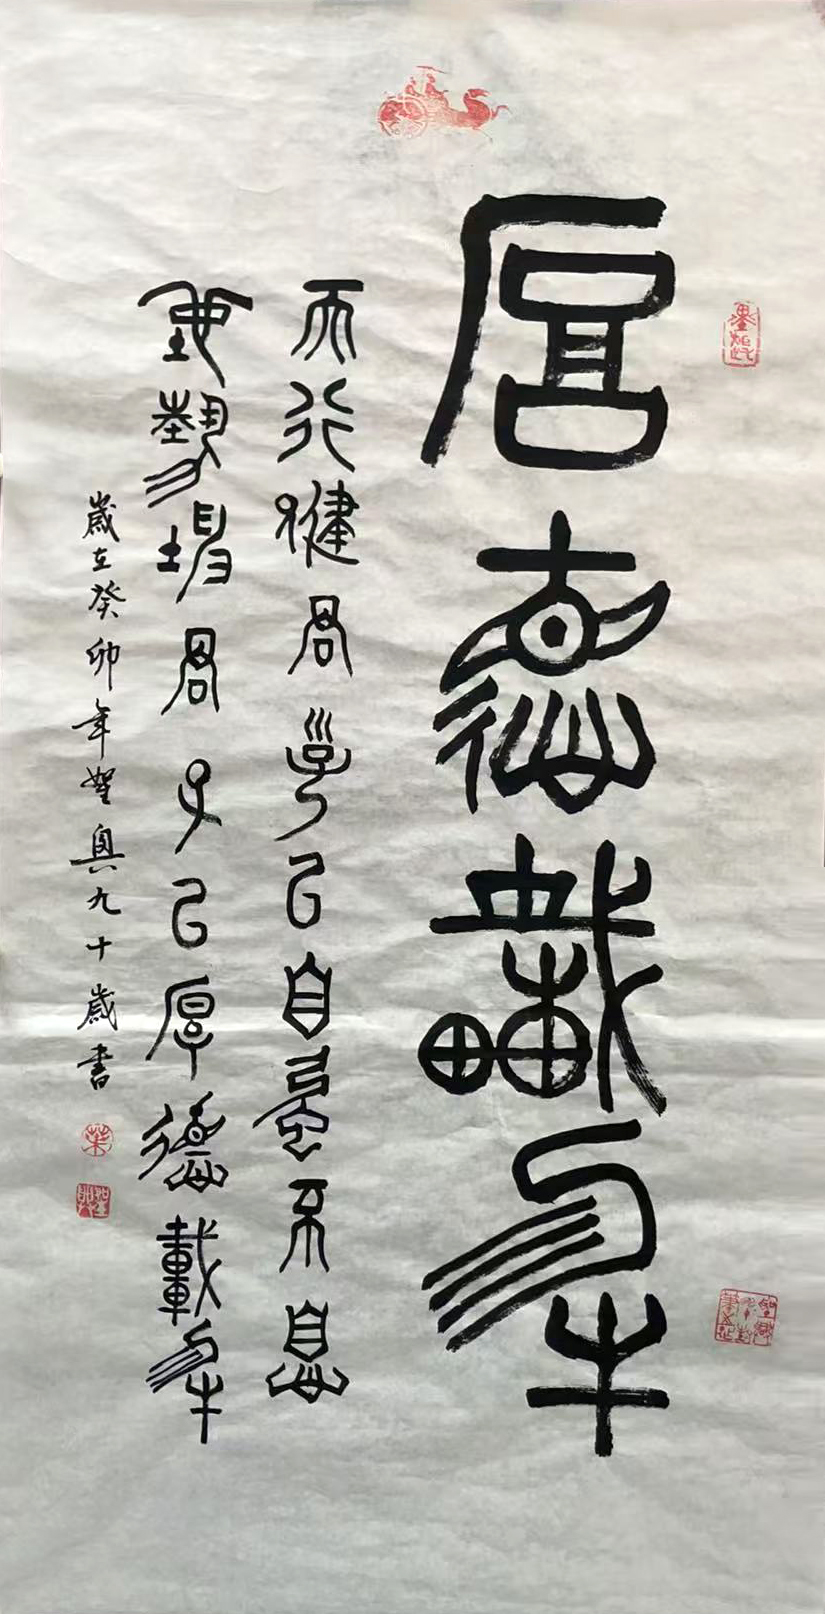 厚德載物
天行健君子以自强不息
地勢坤君子以厚德載物
歲在癸卯年
九十歲書